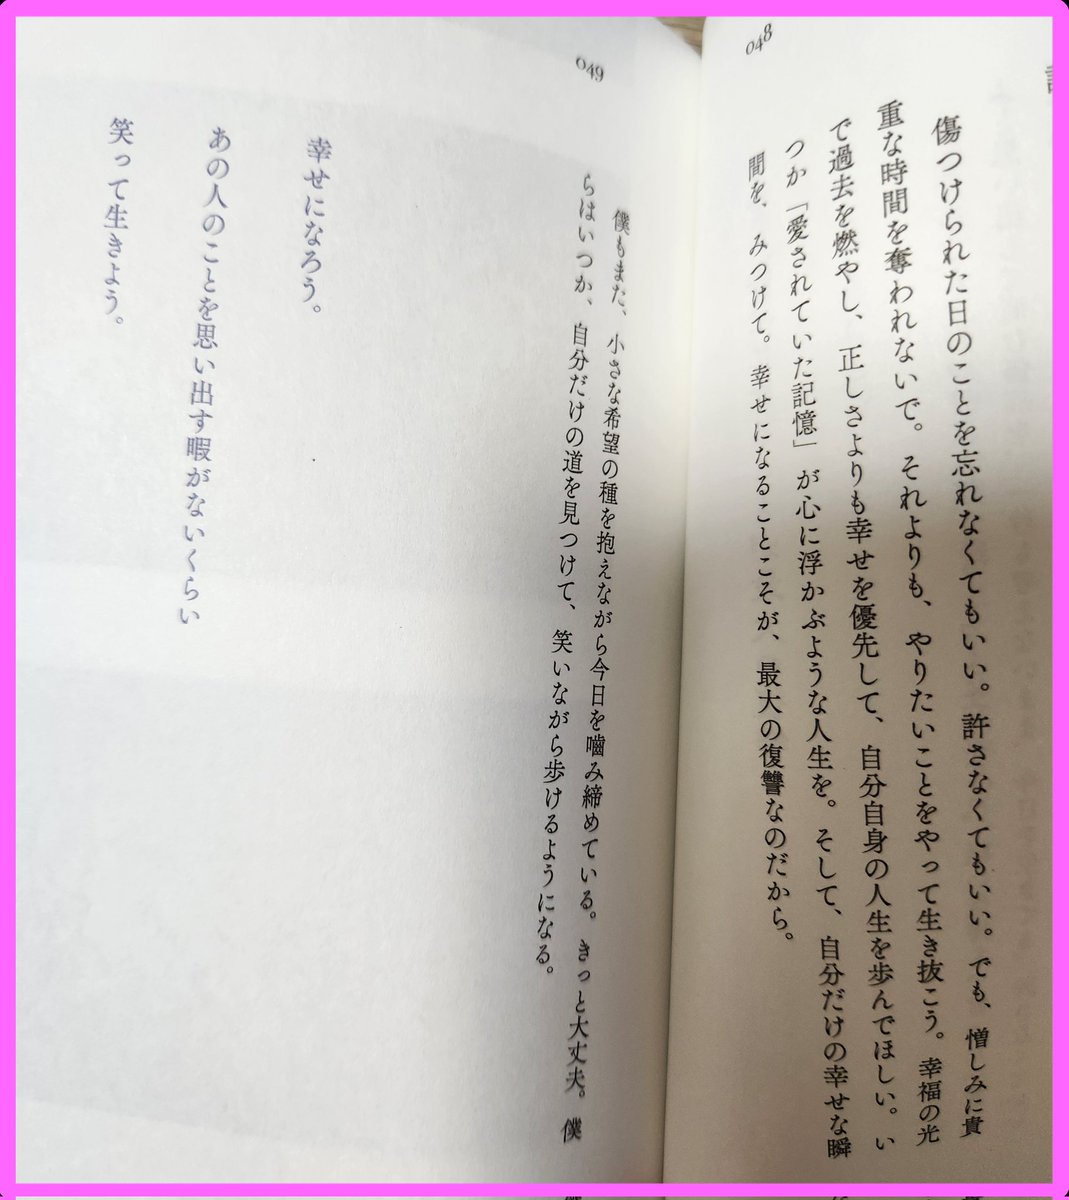 048
傷つけられた日のことを忘れなくてもいい。許さなくてもいい。でも、憎しみに貴
重な時間を奪われないで。それよりも、やりたいことをやって生き抜こう。幸福の光
で過去を燃やし、正しさよりも幸せを優先して、自分自身の人生を歩んでほしい。い
つか「愛されていた記憶」が心に浮かぶような人生を。そして、自分だけの幸せな瞬
間を、みつけて。幸せになることこそが、最大の復讐なのだから。
049
僕もまた、小さな希望の種を抱えながら今日を噛み締めている。きっと大丈夫。僕
らはいつか、自分だけの道を見つけて、笑いながら歩けるようになる。
幸せになろう。
あの人のことを思い出す暇がないくらい
笑って生きよう。